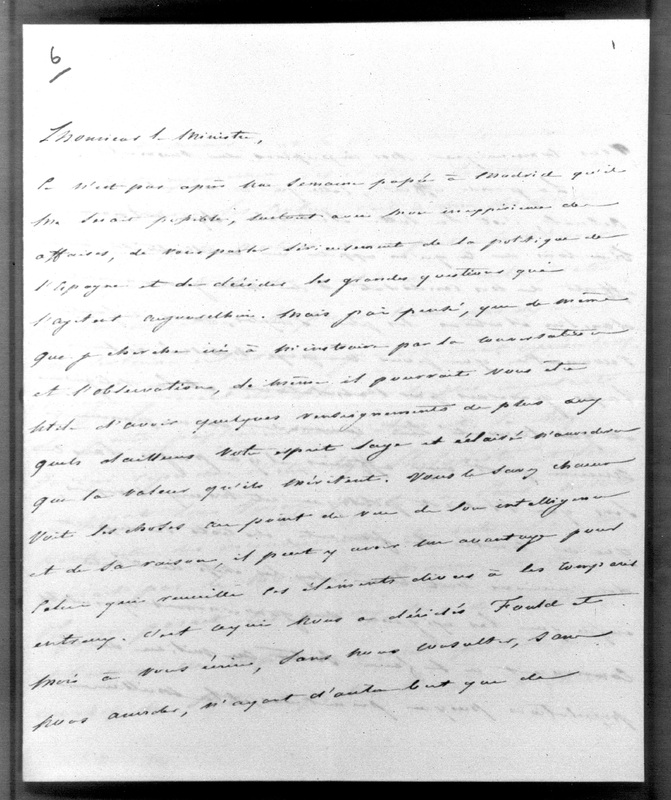 6
1
Monsieur le Ministre,
Ce n'est pas après une semaine passée à Madrid qu'il
me serait possible, surtout avec mon inexpérience des
affaires, de vous parler sérieusement de la politique de
l'Espagne et de décider les grandes questions qui
l'agitent aujourd'hui. Mais j'ai pensé, que de même
que je cherche ici à m'instruire par la conversation
et l'observation, de même il pourrait vous être
utile d'avoir quelques renseignements de plus aux
quels d'ailleurs votre esprit sage et éclairé n'accordera
que la valeur qu'ils méritent. Vous le savez chacun
voit les choses au point de vue de son intelligence
et de sa raison, il peut y avoir un avantage pour
celui qui recueille ces éléments divers à les comparer
entr'eux. C'est ce qui nous a décidés Fould et
moi à vous écrire, sans nous consulter, sans
nous accorder, n'ayant d'autre but que de